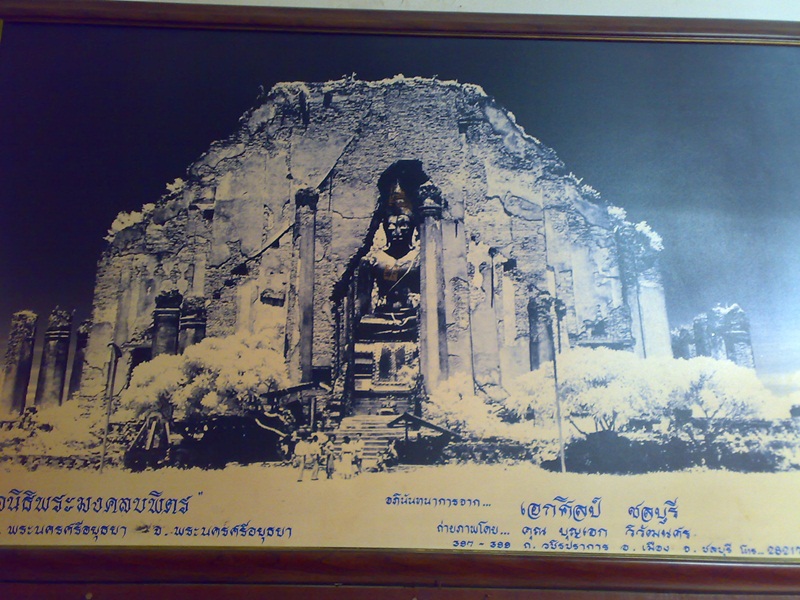 นิธีพระมงคลบพิตร"
พระนครศรีอยุธยา อ.พระนครศรีอยุธยา
อภินันทนาการจาก... เอกศิลป์ ชลบุรี
ถ่ายภาพโดย... คุณ บุญเอก วิวัฒนคร
397 - 399 ถ. วชิรปราการ อ. เมือง จ. ชลบุรี โทร..